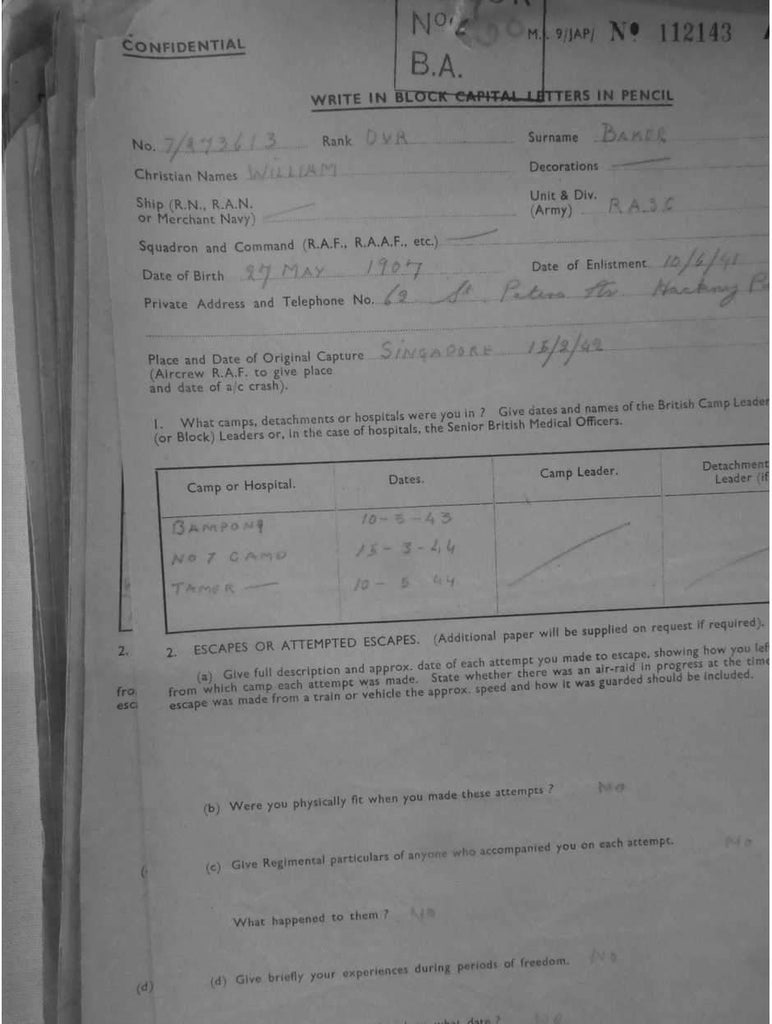 CONFIDENTIAL
No.
B.A.
M. 9/JAP/ No 112143
WRITE IN BLOCK CAPITAL LETTERS IN PENCIL
No. 7/273613 Rank DVR Surname BAKER
Christian Names WILLIAM Decorations
Ship (R.N., R.A.N. or Merchant Navy)
Unit & Div. (Army) RASC
Squadron and Command (R.A.F., R.A.A.F., etc.)
Date of Birth 27 MAY 1907 Date of Enlistment 10/6/41
Private Address and Telephone No. 62 St Peters Str Hackney
Place and Date of Original Capture SINGAPORE 15/2/42
(Aircrew R.A.F. to give place
and date of a/c crash).
1. What camps, detachments or hospitals were you in ? Give dates and names of the British Camp Leader
(or Block) Leaders or, in the case of hospitals, the Senior British Medical Officers.
Camp or Hospital. Dates. Camp Leader. Detachment
Leader (if
BAMPONG 10-5-43
NO 7 CAMP 15-3-44
10-5 44
2. 2. ESCAPES OR ATTEMPTED ESCAPES. (Additional paper will be supplied on request if required).
(a) Give full description and approx. date of each attempt you made to escape, showing how you lef
fro from which camp each attempt was made. State whether there was an air-raid in progress at the time
esc escape was made from a train or vehicle the approx. speed and how it was guarded should be included.
(b) Were you physically fit when you made these attempts ? No
( (c) Give Regimental particulars of anyone who accompanied you on each attempt. No
What happened to them ? No
(d) (d) Give briefly your experiences during periods of freedom. No
what date ? No